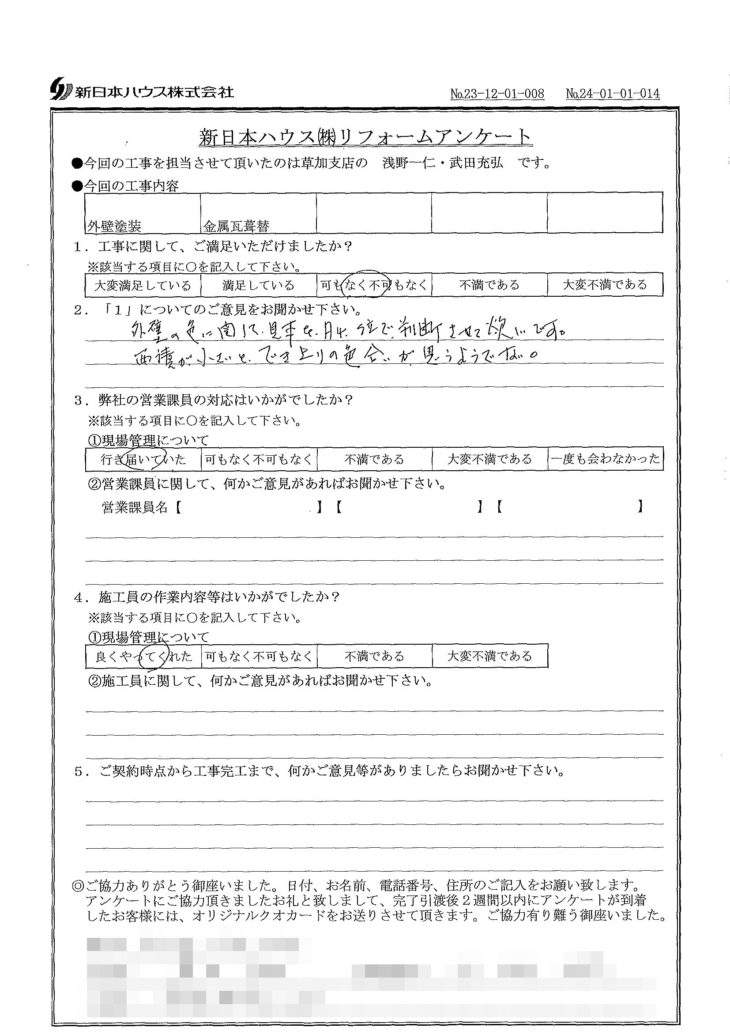 新日本ハウス株式会社
№23-12-01-008 №24-01-01-014
新日本ハウス㈱リフォームアンケート
●今回の工事を担当させて頂いたのは草加支店の 浅野一仁・武田充弘 です。
●今回の工事内容
外壁塗装 金属瓦葺替
1．工事に関して、ご満足いただけましたか？
※該当する項目に○を記入して下さい。
大変満足している 満足している 可もなく不可もなく 不満である 大変不満である
2．「1」についてのご意見をお聞かせ下さい。
外壁の色に関して、見本を 位で、判断させて欲しいです。
面積が小さいと、でき上りの色合いが、思うようでない。
3．弊社の営業課員の対応はいかがでしたか？
※該当する項目に○を記入して下さい。
①現場管理について
行き届いていた 可もなく不可もなく 不満である 大変不満である 一度も会わなかった
②営業課員に関して、何かご意見があればお聞かせ下さい。
営業課員名【 】【 】【 】
4．施工員の作業内容等はいかがでしたか？
※該当する項目に○を記入して下さい。
①現場管理について
良くやってくれた 可もなく不可もなく 不満である 大変不満である
②施工員に関して、何かご意見があればお聞かせ下さい。
5．ご契約時点から工事完工まで、何かご意見等がありましたらお聞かせ下さい。
◎ご協力ありがとう御座いました。日付、お名前、電話番号、住所のご記入をお願い致します。
アンケートにご協力頂きましたお礼と致しまして、完了引渡後２週間以内にアンケートが到着
したお客様には、オリジナルクオカードをお送りさせて頂きます。ご協力有り難う御座いました。